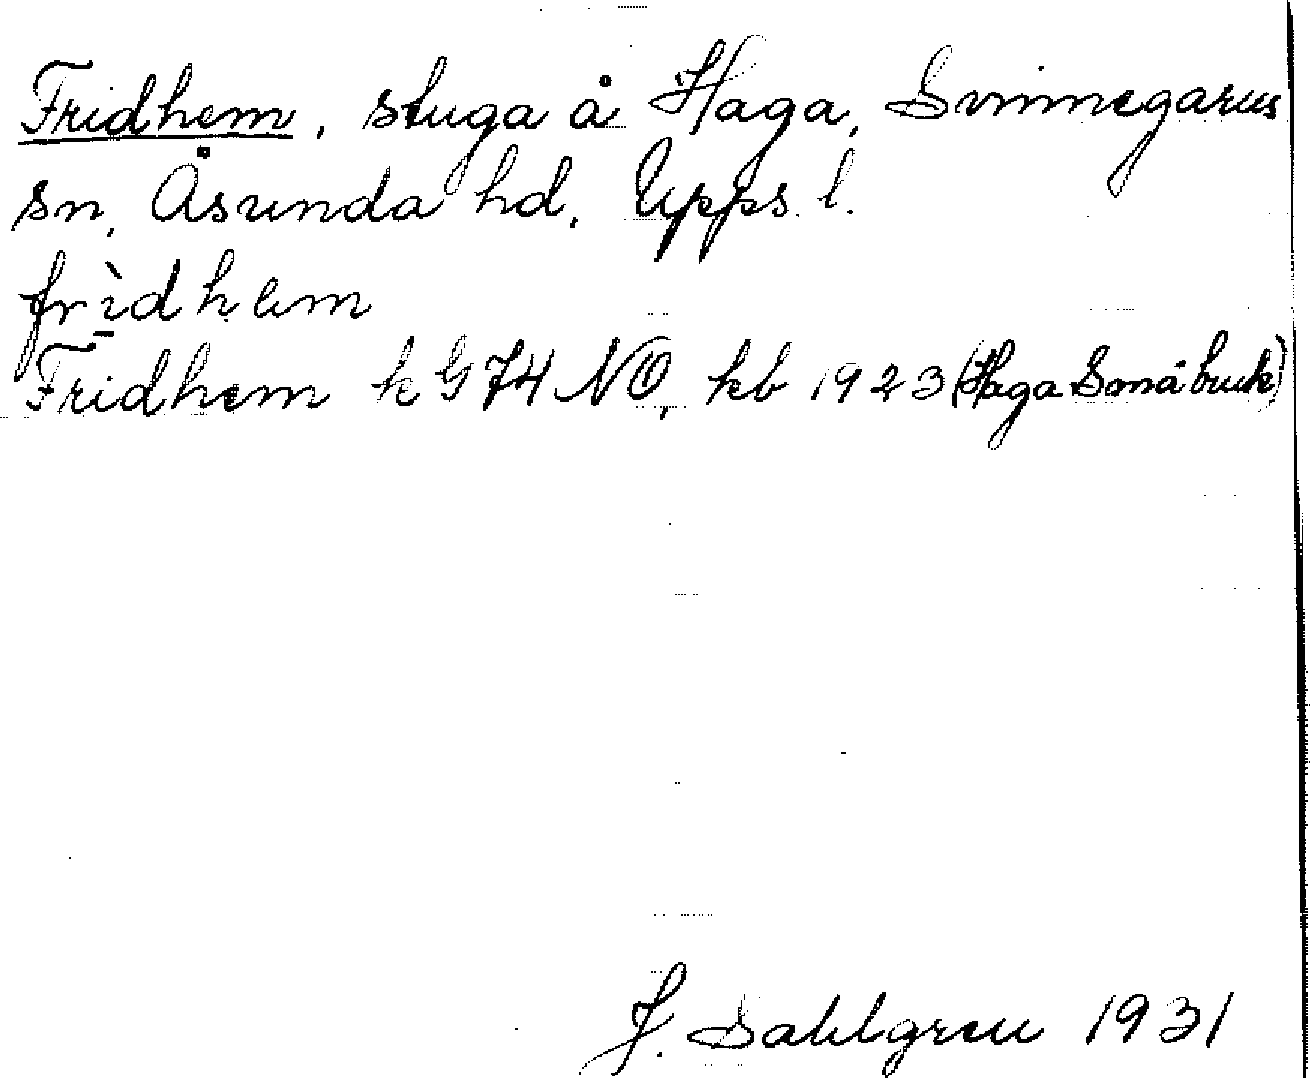 Fridhem, stuga å Haga, Svinnegarns
sn, Åsunda hd, Upps. l.
frìdhem
Fridhem k G 74 NO, kb 1923 (Haga Småbruk)
J. Sahlgren 1931